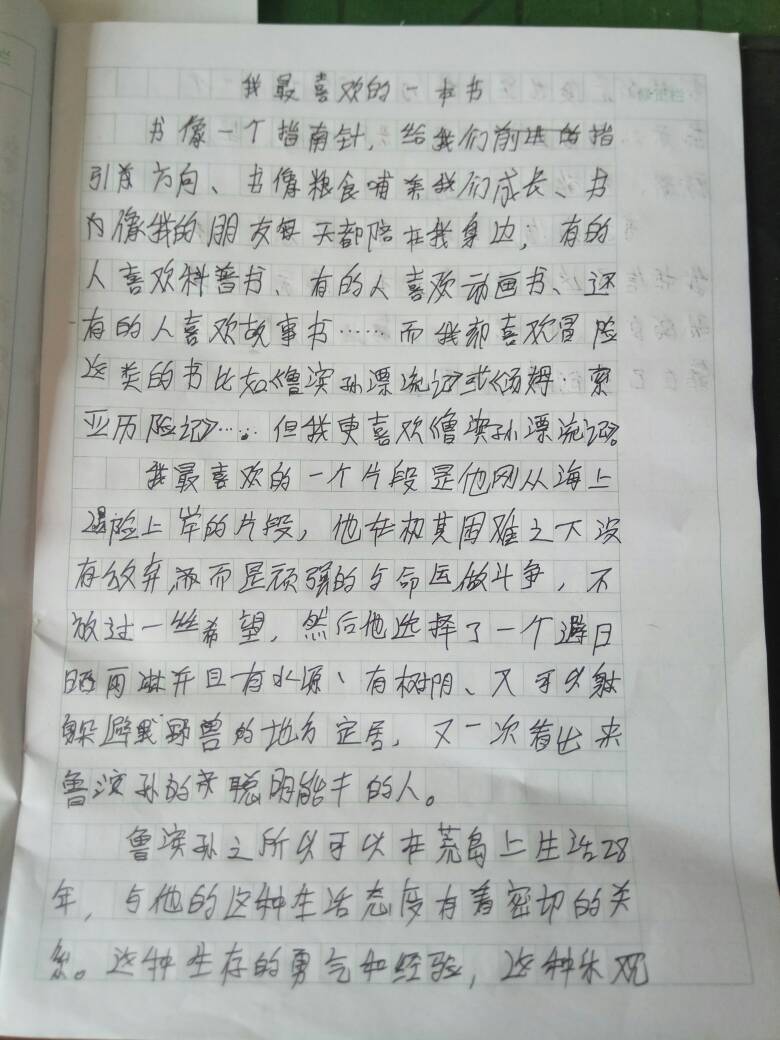 我最喜欢的一本书
书像一个指南针，给我们前进的指
引着方向、书像粮食哺养我们成长、书
为像我的朋友每天都陪在我身边，有的
人喜欢科普书、有的人喜欢动画书、还
有的人喜欢故事书……而我却喜欢冒险
这类的书比如《鲁滨孙漂流记》或《汤姆·索
亚历险记》……但我更喜欢《鲁滨孙漂流记》。
我最喜欢的一个片段是他刚从海上
遇险上岸的片段，他在极其困难之下没
有放弃，而是顽强的与命运做斗争，不
放过一丝希望，然后他选择了一个避日
晒雨淋并且有水源、有树阴、又可以
躲避野兽的地方定居，又一次看出来
鲁滨孙的聪明能干的人。
鲁滨孙之所以可以在荒岛上生活28
年，与他的这种生活态度有着密切的关
系。这种生存的勇气和经验，这种乐观